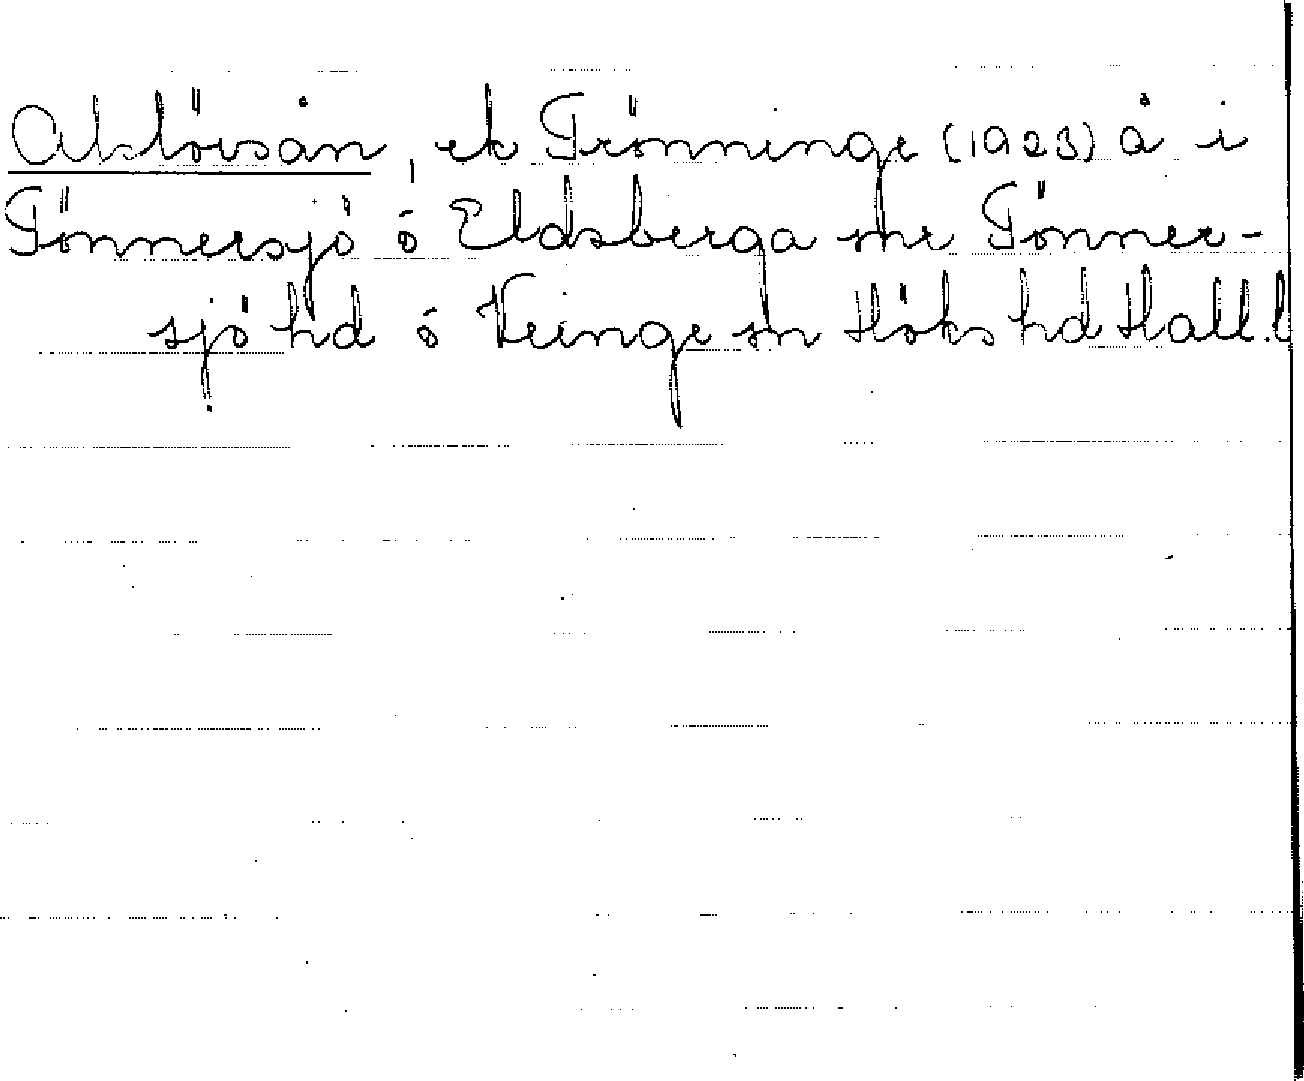 Alslövsån, ek Trönninge (1923) å i
Tönnersjö ō Eldsberga snr Tönner-
sjö hd ō Veinge sn Höks hd Hall.l